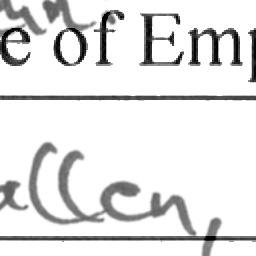 e of Emp
allen,